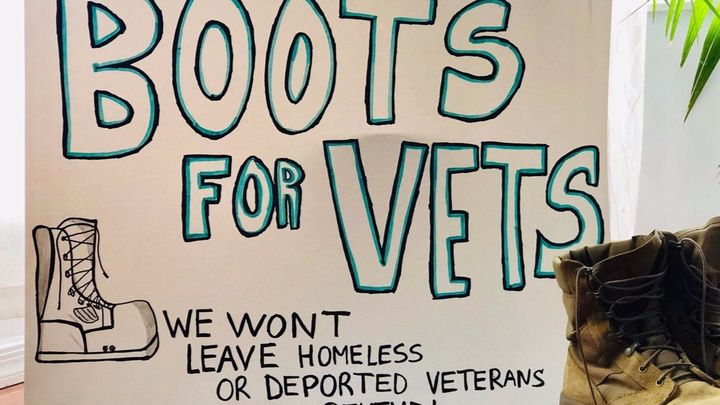 BOOTS
FOR VETS
WE WONT
LEAVE HOMELESS
OR DEPORTED VETERANS